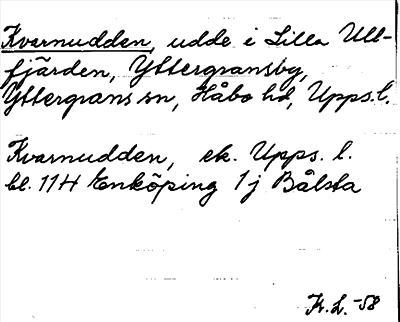 Kvarnudden, udde i Lilla Ull-
fjärden, Yttergransby,
Yttergrans sn, Håbo hd, Upps. l.
Kvarnudden, ek. Upps. l.
bl. 114 Enköping 1j Bålsta
Kr. L. -58